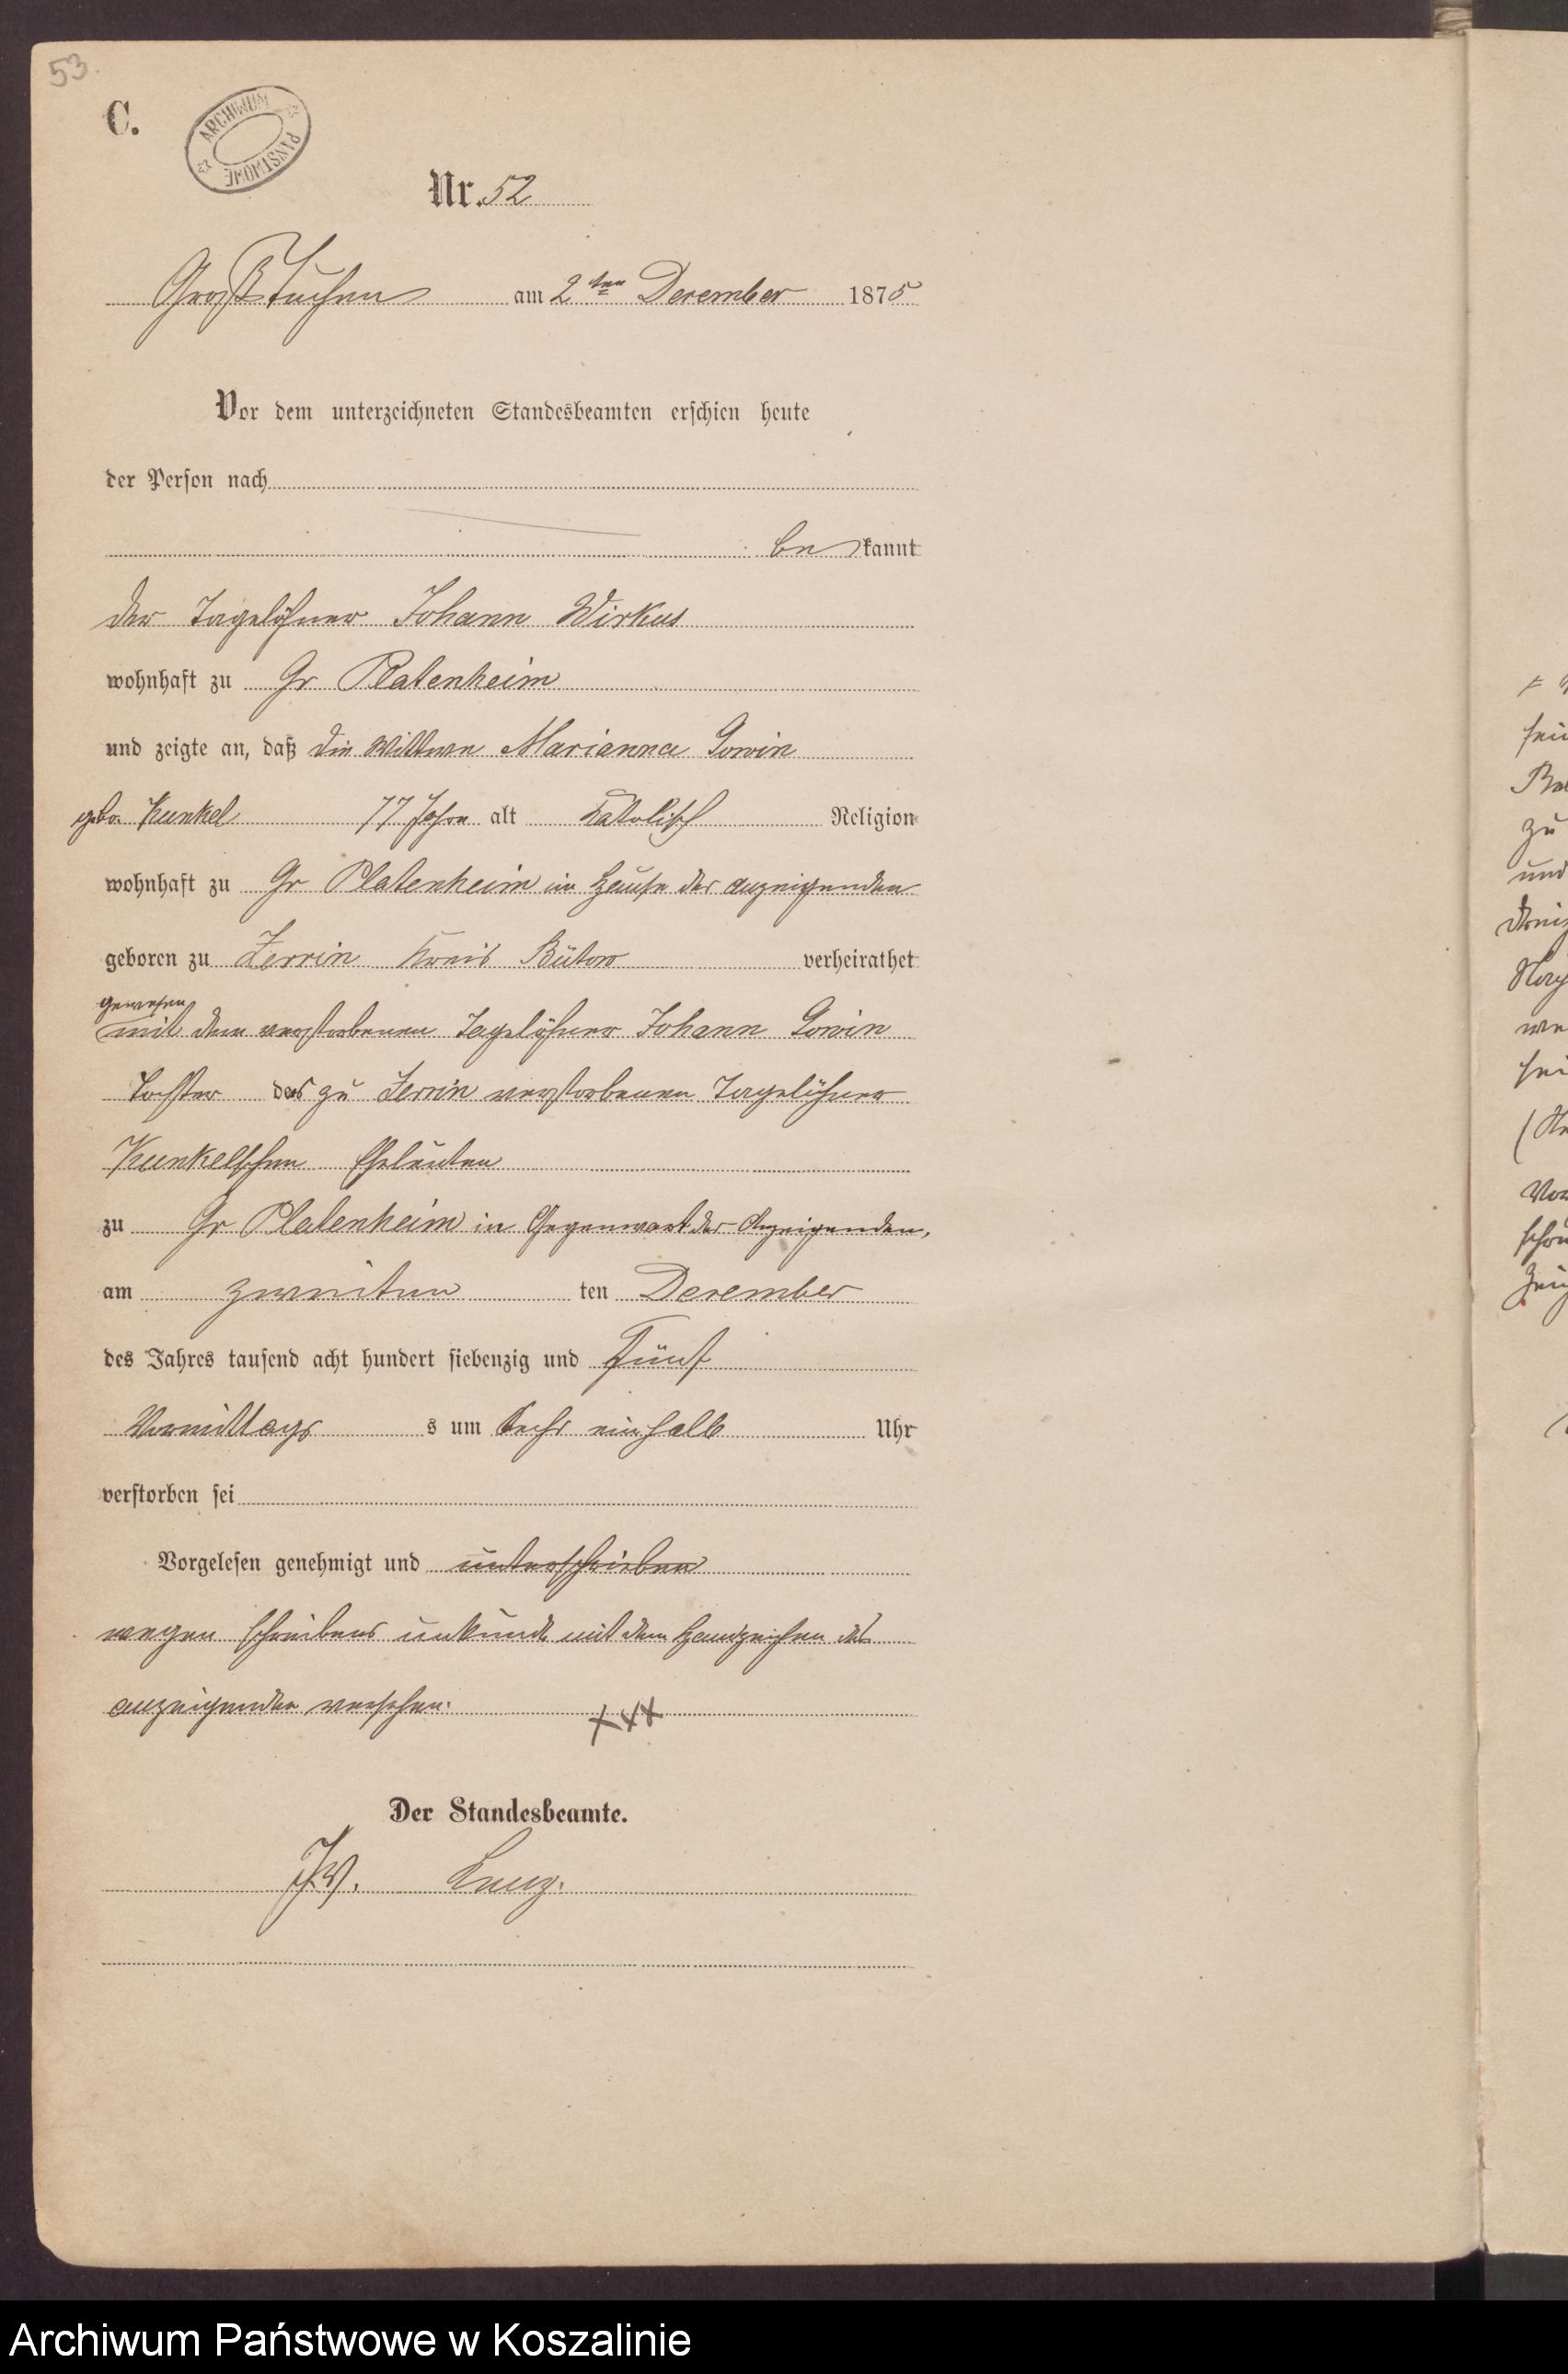 53.
C.
ARCHIWUM PAŃSTWOWE
Nr. 52
Groß Tuchen am 2ten December 1875
Vor dem unterzeichneten Standesbeamten erschien heute
der Person nach
be kannt
der Tagelöhner Johann Wirkus
wohnhaft zu Gr Platenheim
und zeigte an, daß die Wittwe Marianna Gowin
geb. Kunkel 77 Jahre alt Katolisch Religion
wohnhaft zu Gr Platenheim im Hause des anzeigenden
geboren zu Zerrin Kreis Bütow verheirathet
gewesen
mit dem verstorbenen Tagelöhner Johann Gowin
Tochter des zu Zerrin verstorbenen Tagelöhner
Kunkelschen Eheleuten
zu Gr Platenheim in Gegenwart des Anzeigenden,
am zweiten ten December
des Jahres tausend acht hundert siebenzig und Fünf
Vormittags s um Sechs einhalb Uhr
verstorben sei
Vorgelesen genehmigt und unterschrieben
wegen schreibens unkunde mit dem Handzeichen des
anzeigenden versehen.
+++
Der Standesbeamte.
zu
und
(
Archiwum Państwowe w Koszalinie